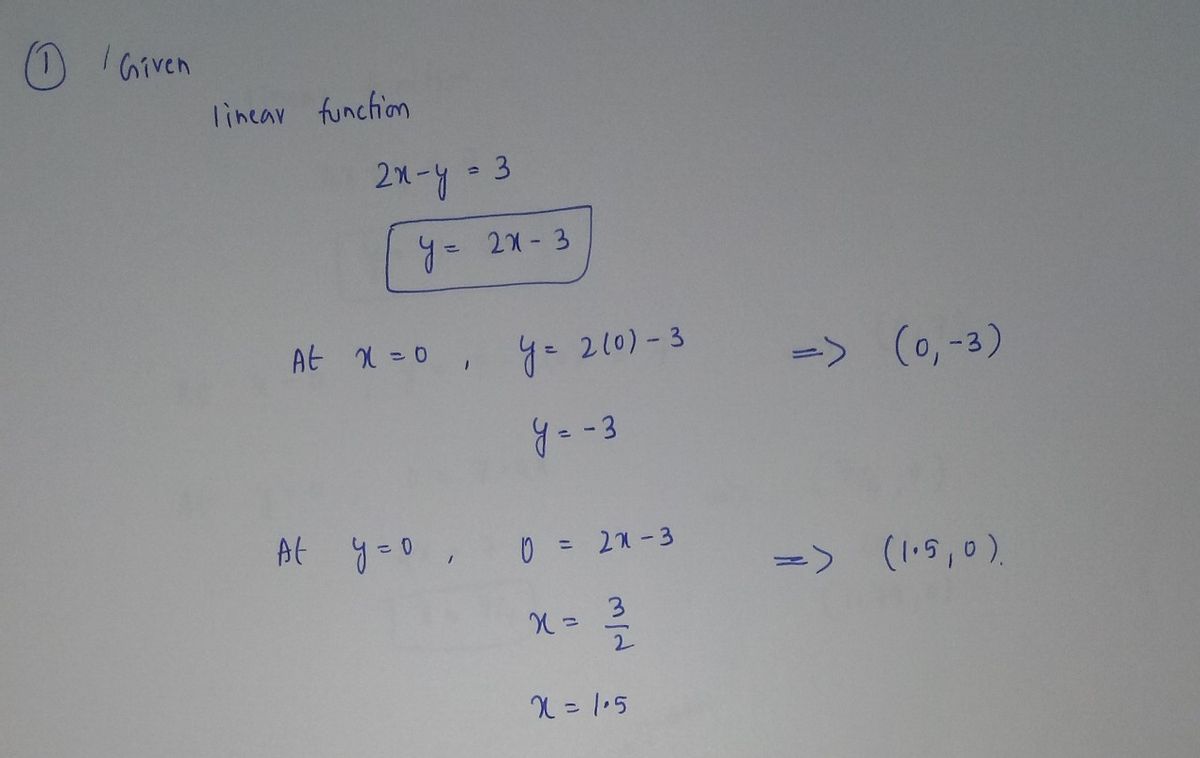 ① / Given
linear function
2x-y = 3
y = 2x - 3
At x = 0 , y = 2(0) - 3 => (0, -3)
y = -3
At y = 0 , 0 = 2x - 3 => (1.5, 0).
x = 3/2
x = 1.5